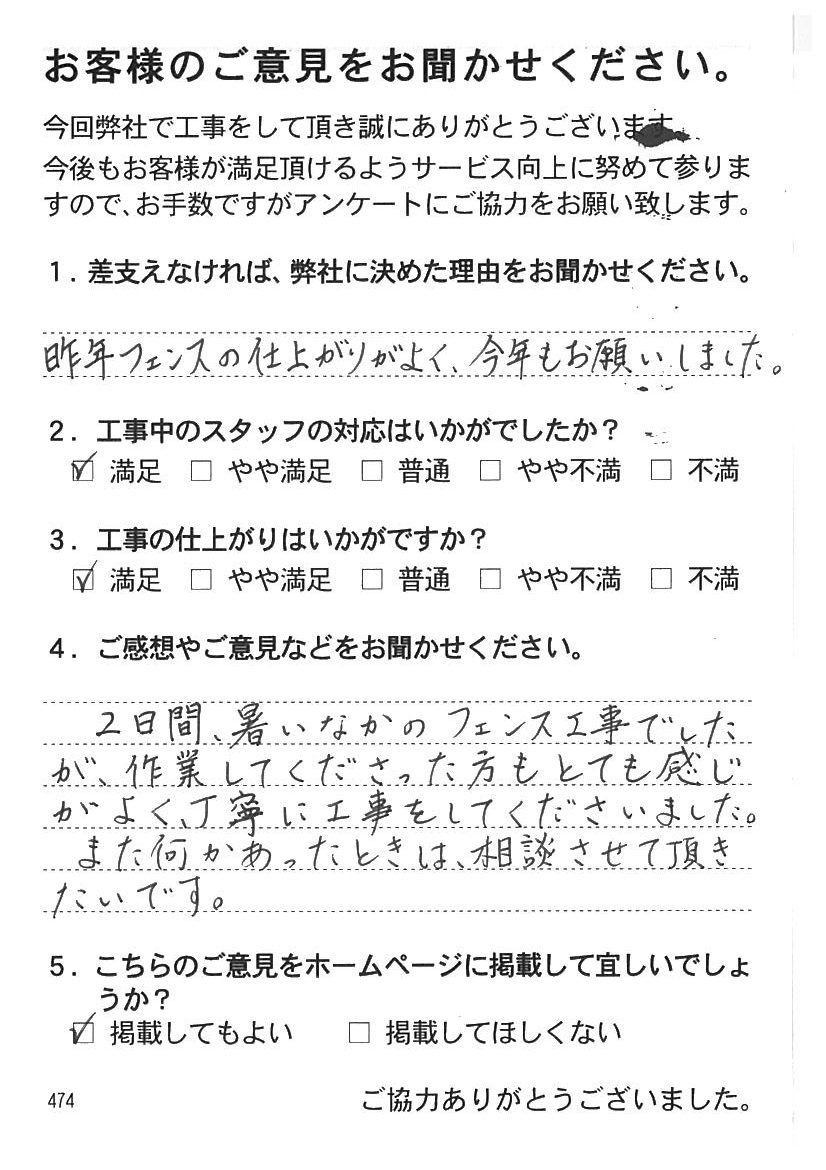 お客様のご意見をお聞かせください。
今回弊社で工事をして頂き誠にありがとうございます。
今後もお客様が満足頂けるようサービス向上に努めて参りま
すので、お手数ですがアンケートにご協力をお願い致します。
1．差支えなければ、弊社に決めた理由をお聞かせください。
昨年フェンスの仕上がりがよく、今年もお願いしました。
2．工事中のスタッフの対応はいかがでしたか？
☑ 満足 □ やや満足 □ 普通 □ やや不満 □ 不満
3．工事の仕上がりはいかがですか？
☑ 満足 □ やや満足 □ 普通 □ やや不満 □ 不満
4．ご感想やご意見などをお聞かせください。
2日間、暑いなかのフェンス工事でした
が、作業してくださった方もとても感じ
がよく、丁寧に工事をしてくださいました。
また何かあったときは、相談させて頂き
たいです。
5．こちらのご意見をホームページに掲載して宜しいでしょ
うか？
☑ 掲載してもよい □ 掲載してほしくない
474 ご協力ありがとうございました。